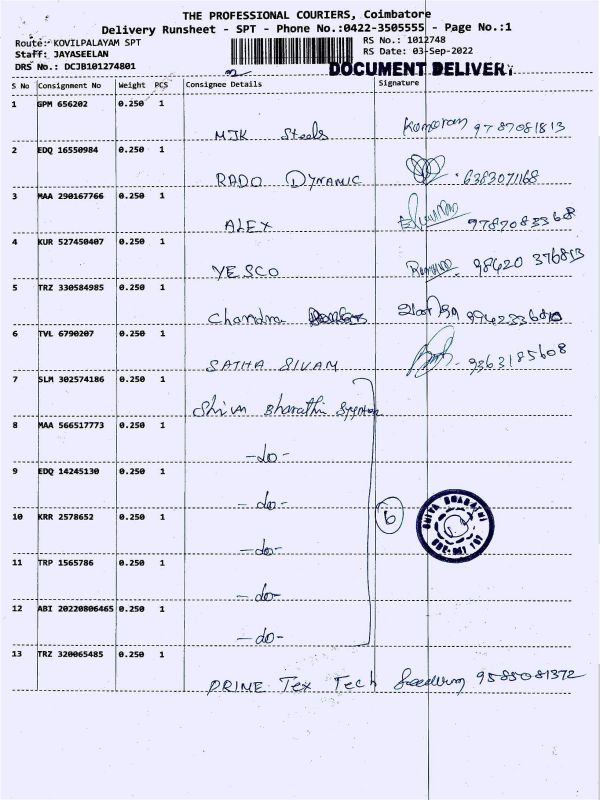 THE PROFESSIONAL COURIERS, Coimbatore
Delivery Runsheet - SPT - Phone No.:0422-3505555 - Page No.:1
Route:- KOVILPALAYAM SPT RS No.: 1012748
Staff: JAYASEELAN RS Date: 03-Sep-2022
DRS No.: DCJB101274801 DOCUMENT DELIVERY
S No Consignment No Weight PCS Consignee Details Signature
1 GPM 656202 0.250 1
MJK Steels 9787081813
2 EDQ 16550984 0.250 1
RADO DYNAMIC 6383071168
3 MAA 290167766 0.250 1
ALEX 9787083368
4 KUR 527450407 0.250 1
YESCO 98420 376813
5 TRZ 330584985 0.250 1
Chandra
6 TVL 6790207 0.250 1
SATHA SIVAM 9363185608
7 SLM 302574186 0.250 1
Shiva Bharathi
8 MAA 566517773 0.250 1
-do-
9 EDQ 14245130 0.250 1
-do-
10 KRR 2578652 0.250 1
6
SHIVA BHARATHI
-do-
11 TRP 1565786 0.250 1
-do-
12 ABI 20220806465 0.250 1
-do-
13 TRZ 320065485 0.250 1
PRIME Tex Tech 9585081372